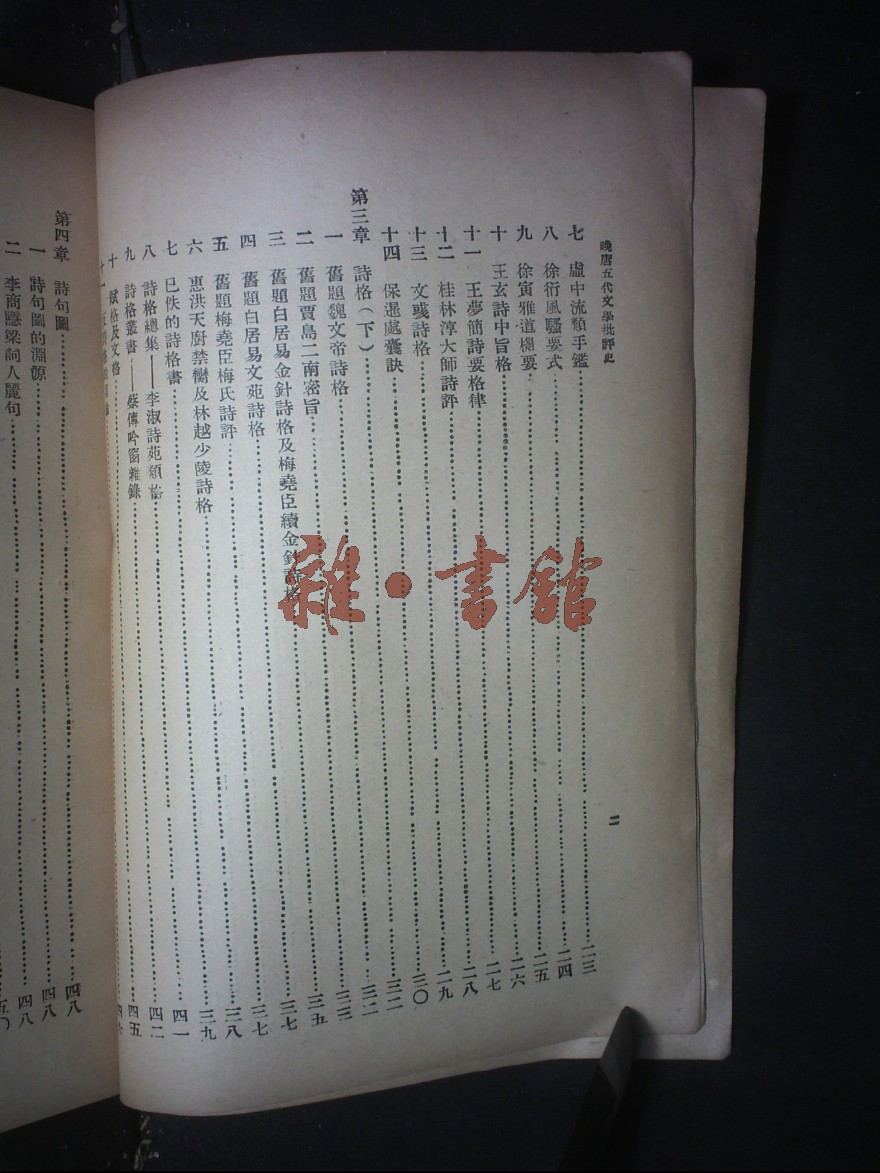 晚唐五代文學批評史
二
七 虛中流類手鑑……二三
八 徐衍風騷要式……二四
九 徐寅雅道機要……二五
十 王玄詩中旨格……二六
十一 王夢簡詩要格律……二七
十二 桂林淳大師詩評……二八
十三 文彧詩格……二九
十四 保暹處囊訣……三〇
第三章 詩格(下)……三二
一 舊題魏文帝詩格……三二
二 舊題賈島二南密旨……三三
三 舊題白居易金針詩格及梅堯臣續金針詩格……三五
四 舊題白居易文苑詩格……三七
五 舊題梅堯臣梅氏詩評……三七
六 惠洪天廚禁臠及林越少陵詩格……三八
七 已佚的詩格書……三九
八 詩格總集——李淑詩苑類格……四一
九 詩格叢書——蔡傳吟窗雜錄……四二
十 賦格及文格……四五
十一
第四章 詩句圖……四八
一 詩句圖的淵源……四八
二 李商隱梁詞人麗句……五〇
雜·書館